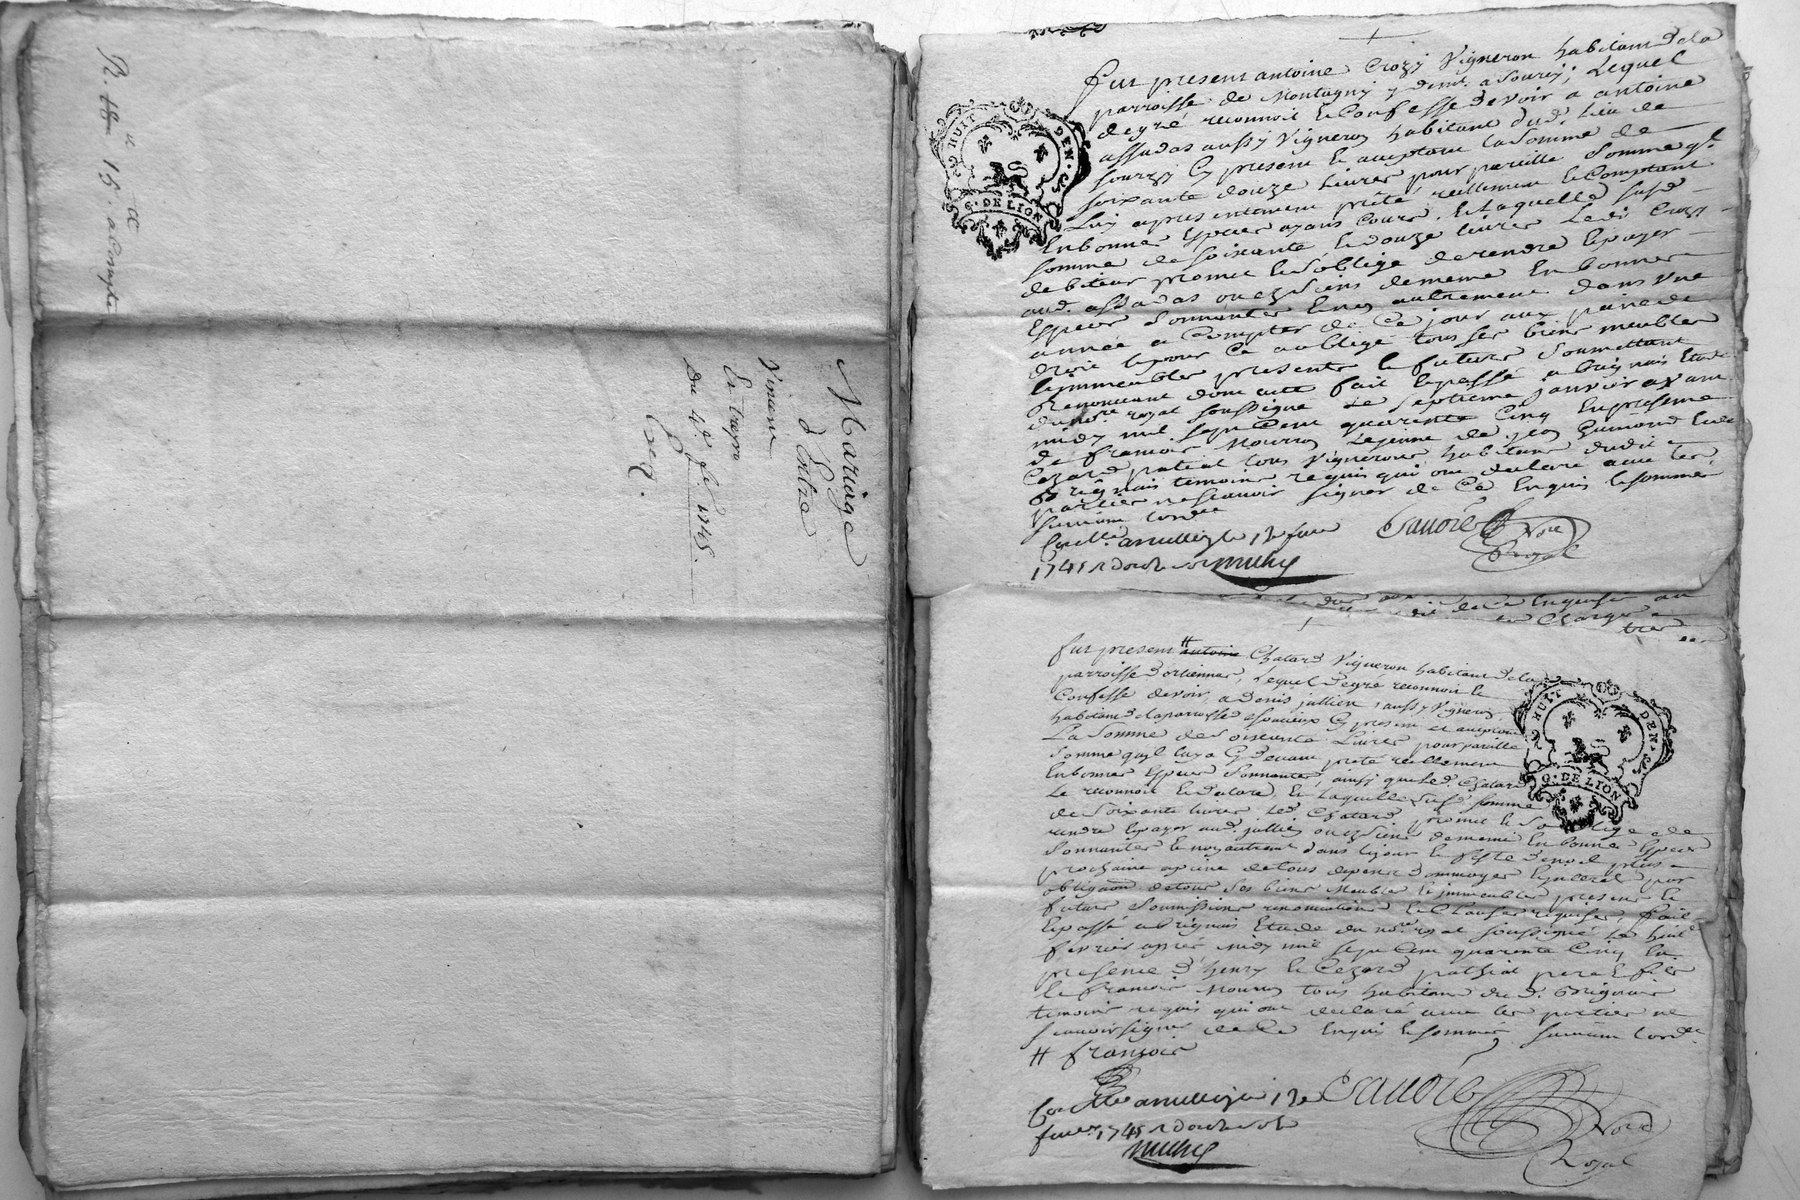 R. 15. acompte
Mariage
d'Entre
Vincent
du 1745.
fut present antoine Crozy Vigneron habitant de la
parroisse de Montagny y demt. a Sourzy; Lequel
degré reconnoit et Confesse devoir a antoine
assadas aussy Vigneron habitant dud. lieu de
Sourzy Cy present et acceptant la Somme de
soixante douze Livres pour pareille Somme
Luy apresentement preté reellement et Comptant
En bonnes Especes ayans Cours, Et laquelle susd.
somme de soixante et douze livres Led. Crozy
debiteur promet et s'oblige de rendre et payer
aud. assadas ou ez siens de meme En bonnes
Especes Sonnantes et non autrement dans Une
année a Compter de Ce jour aux peines de
droit et pour Ce a obligé tous ses biens meubles
et immeubles presents et futurs Soumettant
Renoncant dont acte fait et passé a brignais Etude
du nore. royal soussigné Le Septieme janvier avant
midy mil sept Cent quarante Cinq En presence
de francois Mourron Lejeune de jean Guimond et de
Cezard patial tous Vignerons habitans dudit
Brignais temoins requis qui ont declaré avec les
parties ne scavoir signer de Ce Enquis et sommés
Suivant Lordce
Conlle. a millery le 12e janv.
1745 R douze sols
HUIT DEN.
G. DE LION
Nore
Royal
fut present # antoine Chatard Vigneron habitant de la
parroisse d'orliennas, Lequel degré reconnoit et
Confesse devoir, a Denis jullien, aussy Vigneron
habitant de la parroisse de soucieux Cy present et acceptant
La Somme de soixante Livres pour pareille
Somme quil luy a Cy devant preté reellement
En bonnes Especes Sonnantes, ainsy que Led. Chatard
Le reconnoit et declare, Et laquelle susd. Somme
de Soixante livres Led. Chatard promet et Soblige de
rendre et payer aud. jullien ou ez siens de meme En bonnes Especes
Sonnantes et non autrement dans le jour et feste de noel plus
prochaine a peine de tous depens dommages Interet par
obligaon. de tous Ses biens Meubles et immeubles presens et
futurs Soumissions renonciations et Clauses requises, fait
et passé a Brignais Etude du nore. royal soussigné Le huit
fevrier apres midy mil sept Cent quarante Cinq En
presence d'henry et Cezard patial pere et fils
et francois Mourron tous habitans dud. Brignais
temoins requis qui ont declaré avec les parties ne
Scavoir signer de Ce Enquis et sommés Suivant Lordce.
# francois
Conllé a millery le 12e
fever 1745 R douze sols
HUIT DEN.
G. DE LION
Nore
Royal